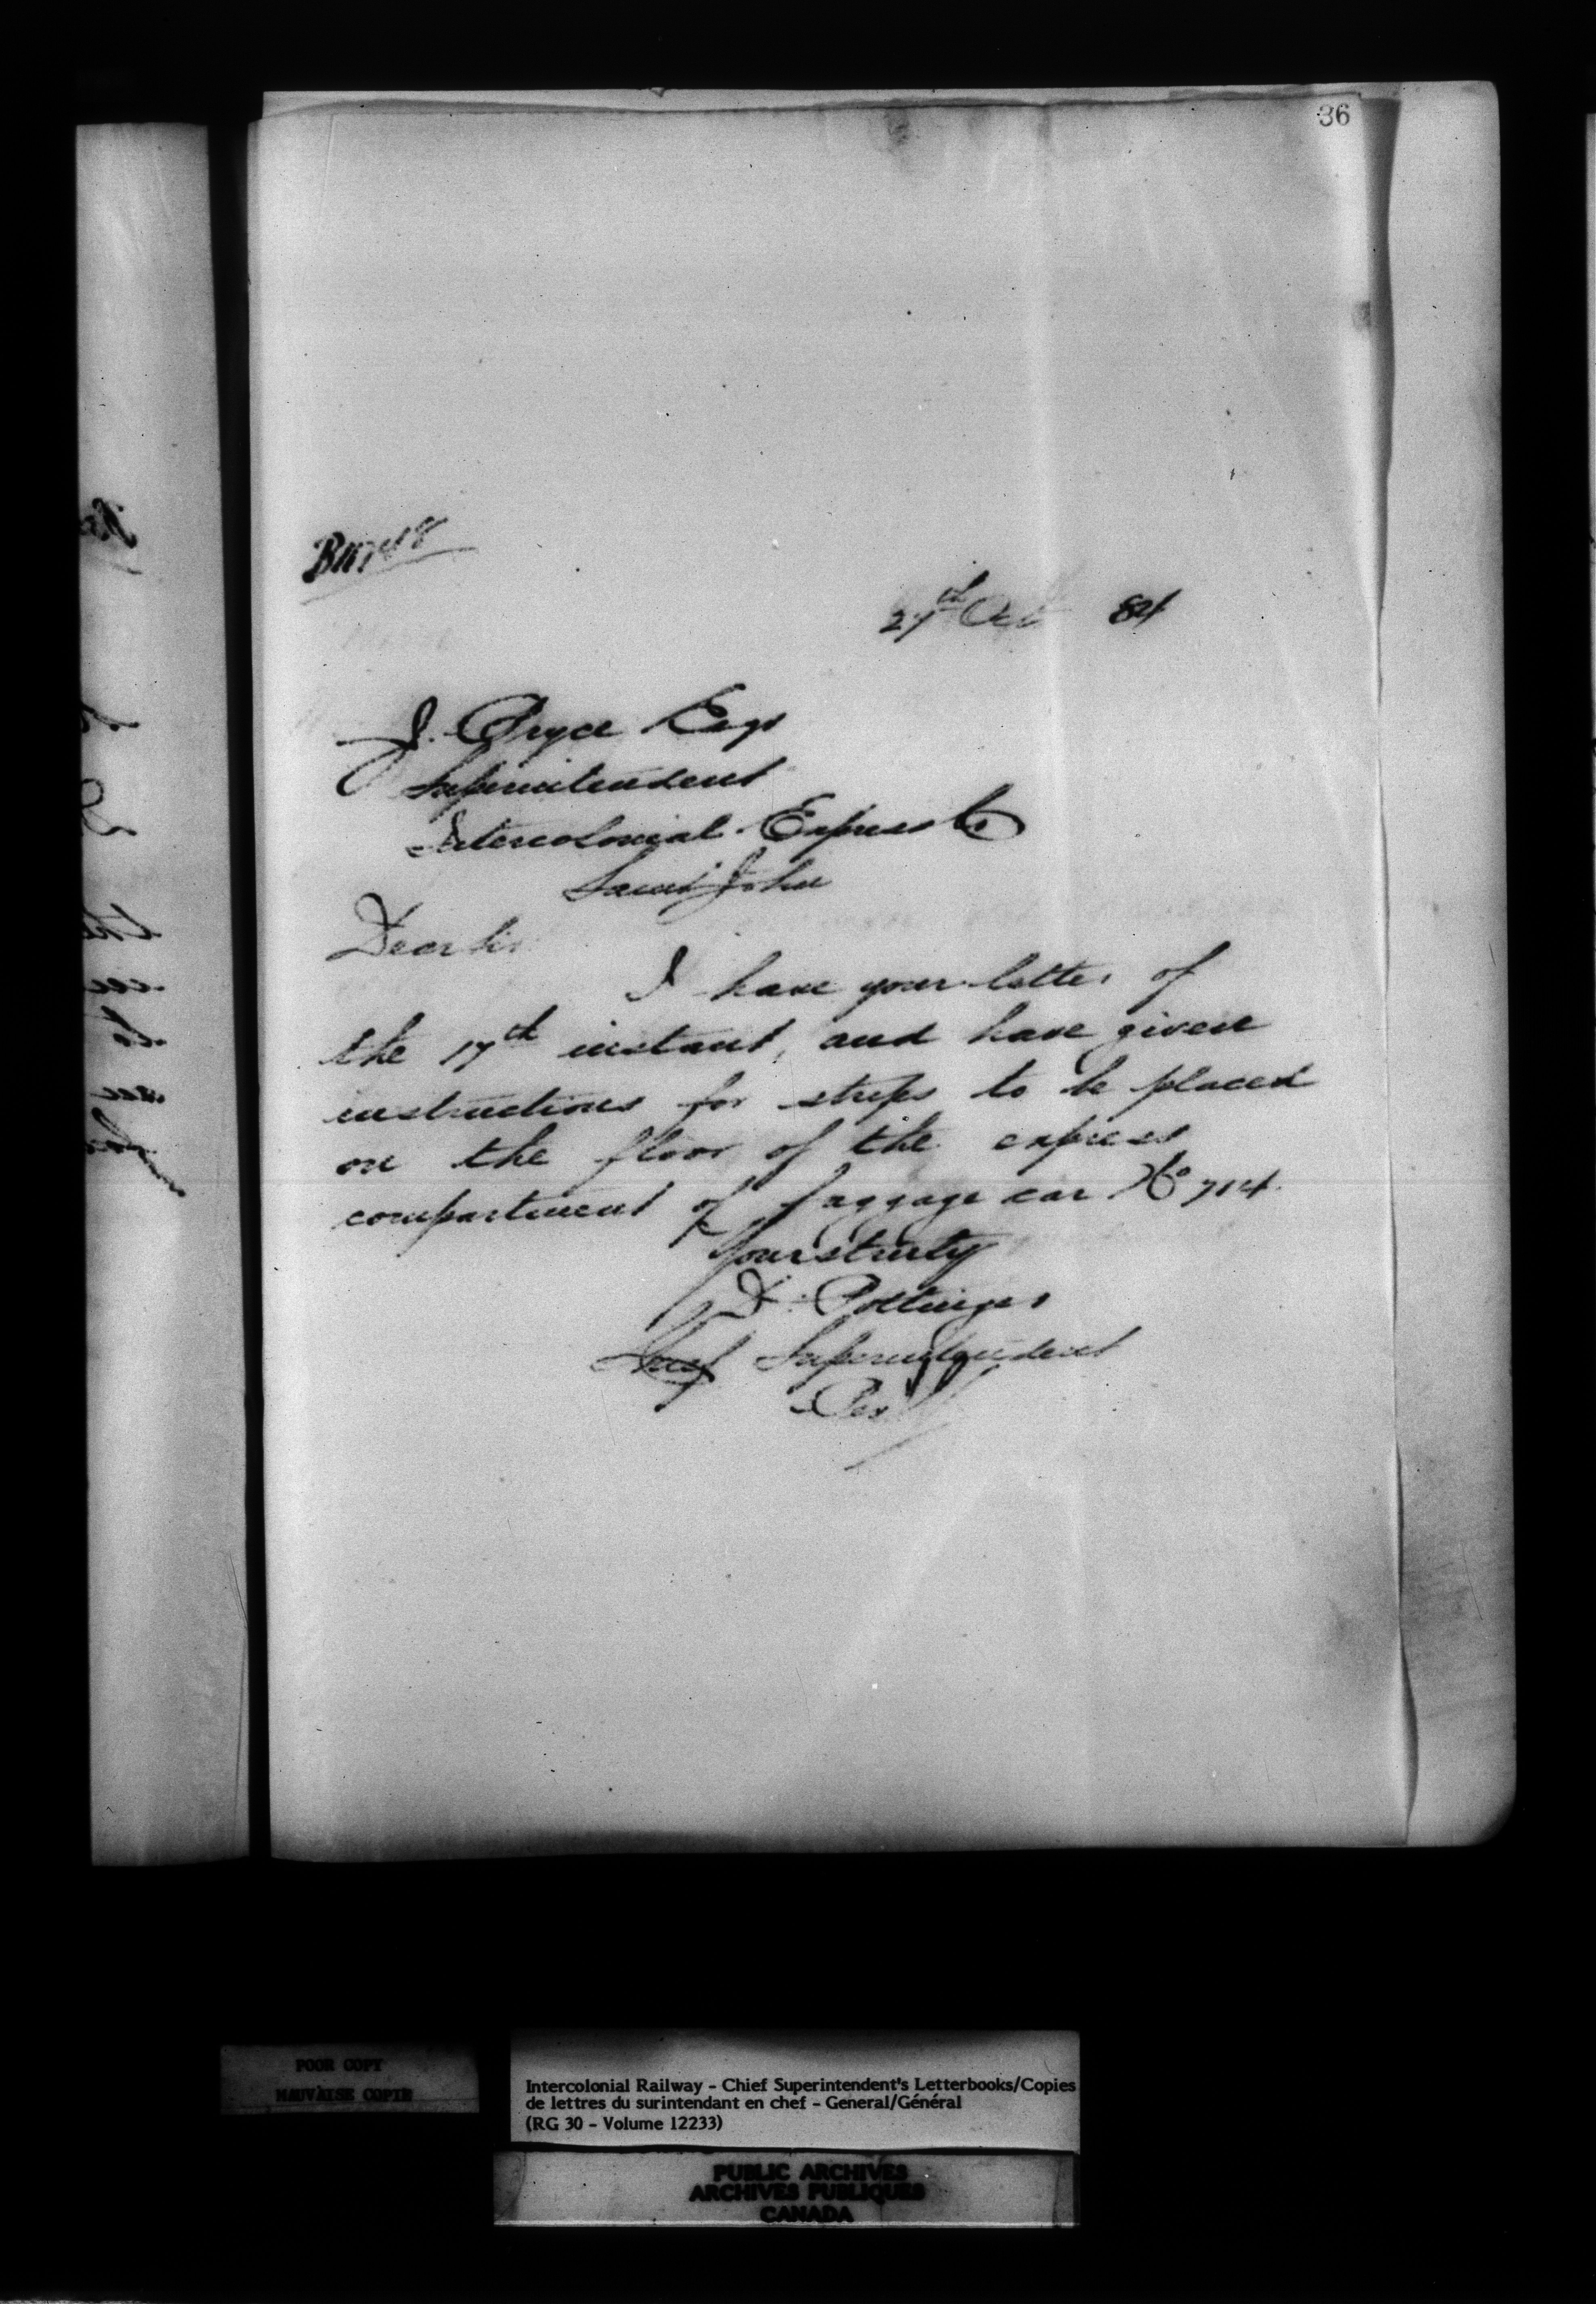 36
27th Oct 84
J. Bryce Esqr
Superintendent
Intercolonial Express Co
Saint John
Dear Sir
I have your letter of
the 17th instant, and have given
instructions for strips to be placed
on the floor of the express
compartment of baggage car No 714.
Yours truly
D. Pottinger
Chief Superintendent
Per
POOR COPY
MAUVAISE COPIE
Intercolonial Railway - Chief Superintendent's Letterbooks/Copies
de lettres du surintendant en chef - General/Général
(RG 30 - Volume 12233)
PUBLIC ARCHIVES
ARCHIVES PUBLIQUES
CANADA